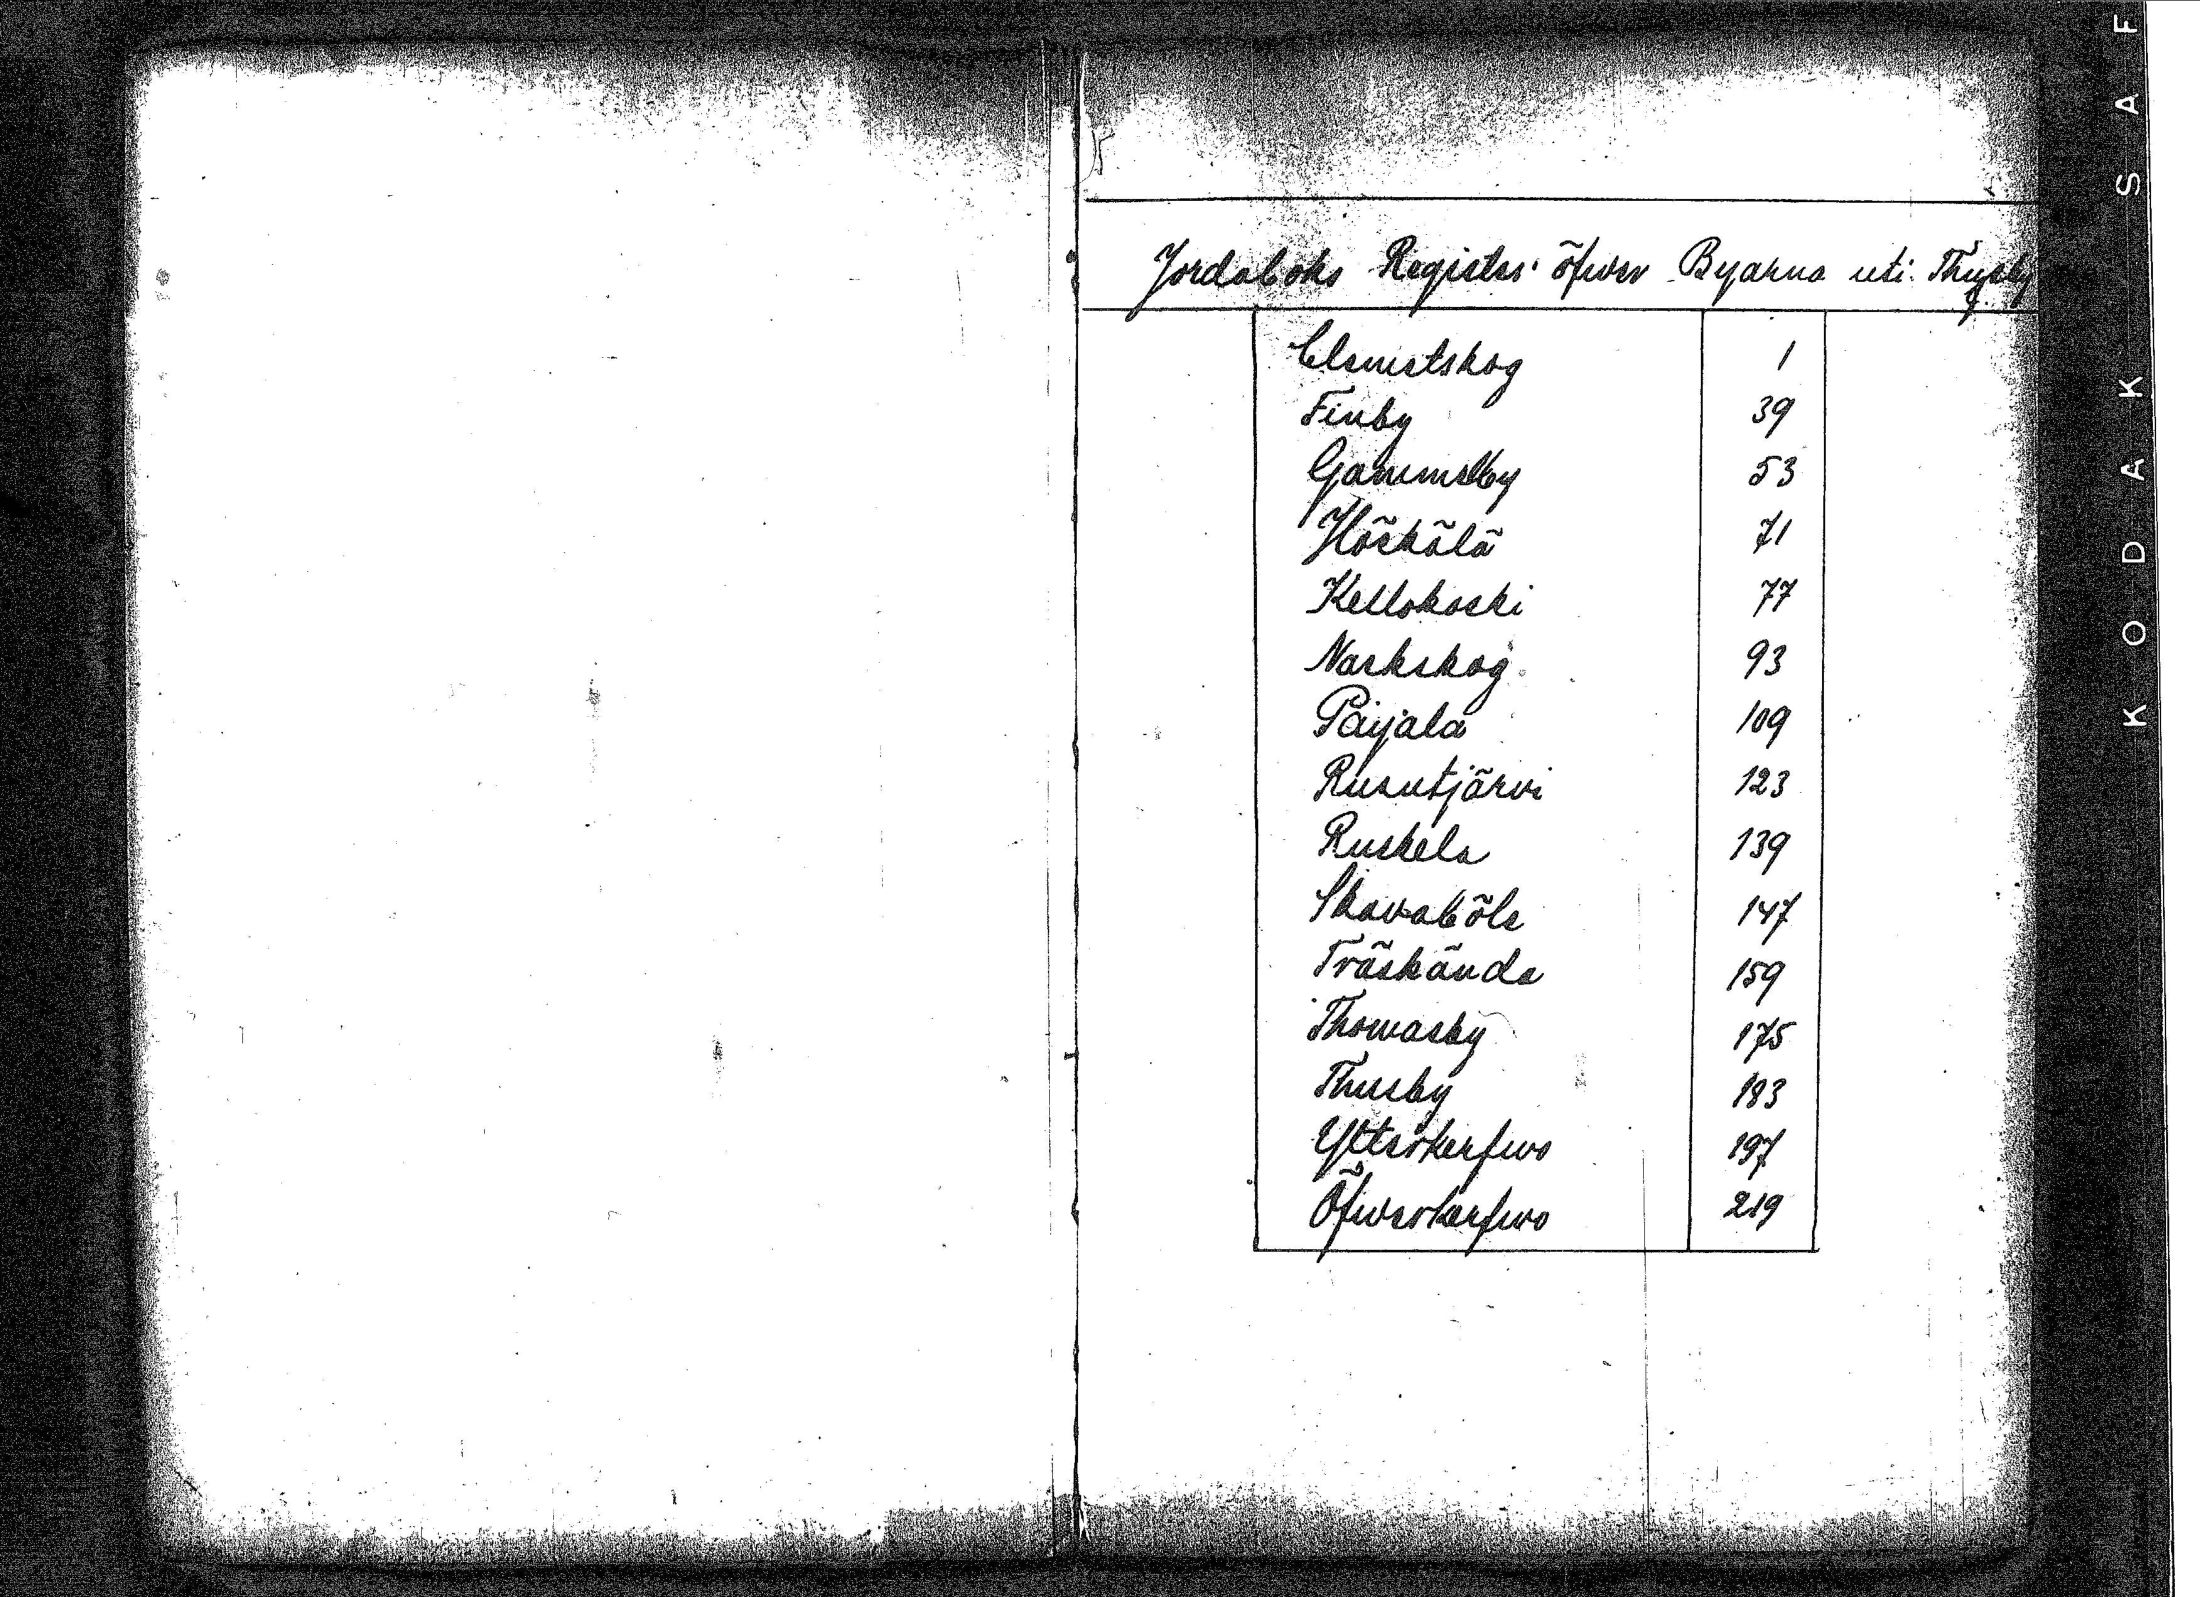 Jordaboks Register öfwer Byarna uti Thusby
Clemetskog 1
Finby 39
Gammelby 53
Höskölä 71
Kellokoski 77
Narkskog 93
Paijala 109
Rusutjärvi 123
Ruskela 139
Skavaböle 147
Träskända 159
Thomasby 175
Thusby 183
Ytterkerfwo 197
Öfwerkerfwo 219
KODAK SAF